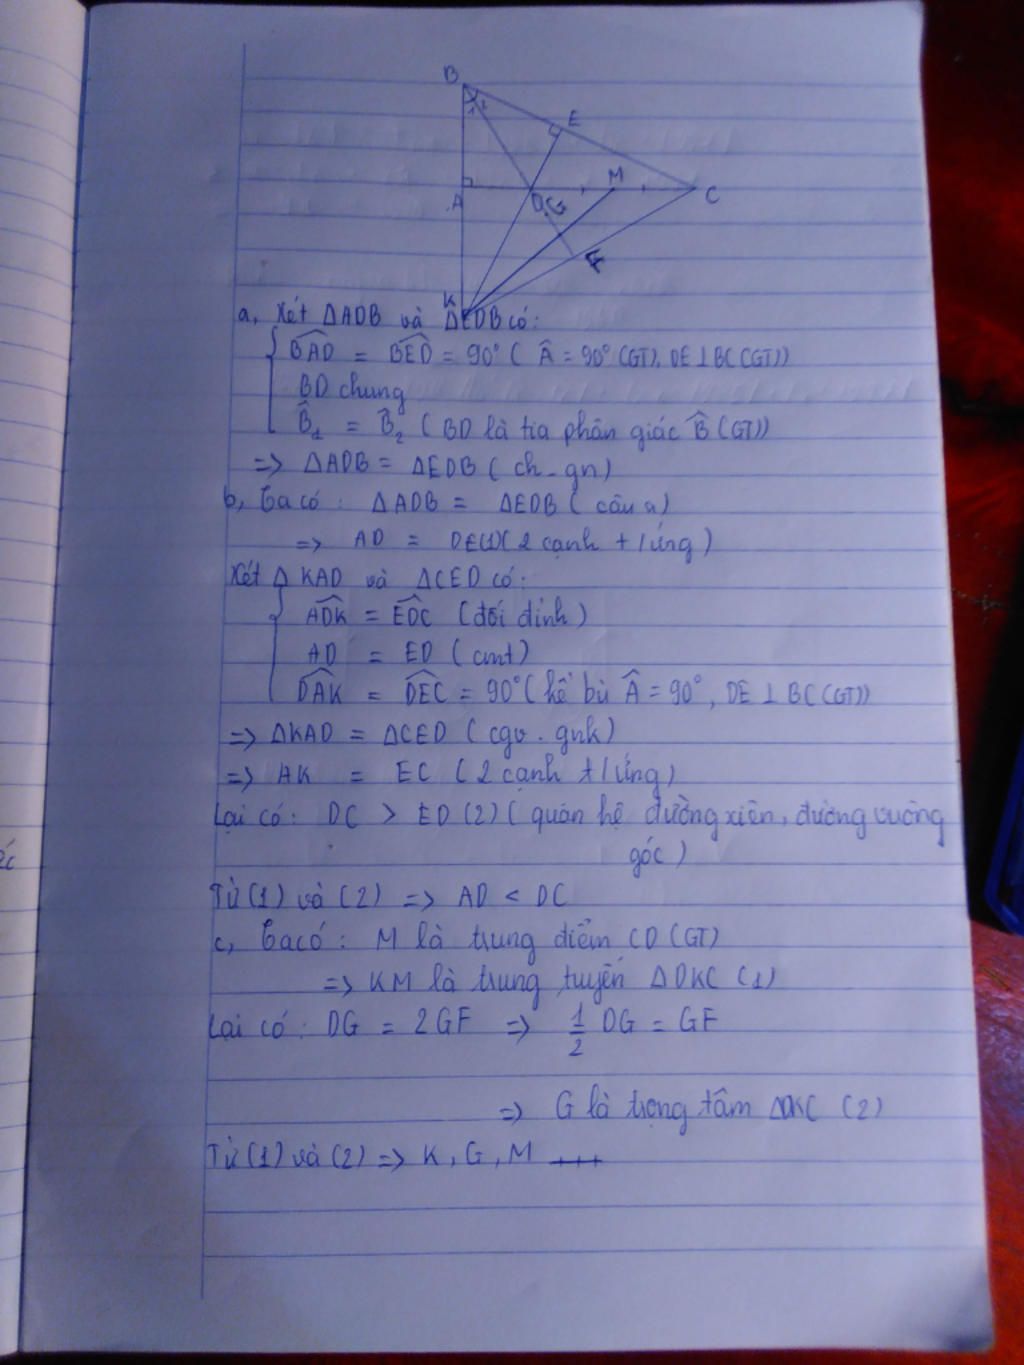 B
1 2
E
M
A
D
G
C
F
K
a, Xét ΔADB và ΔEDB có:
BAD = BED = 90° ( Â = 90° (GT), DE ⊥ BC (GT))
BD chung
B̂1 = B̂2 ( BD là tia phân giác B̂ (GT))
=> ΔADB = ΔEDB ( ch - gn)
b, Ta có : ΔADB = ΔEDB ( câu a)
=> AD = DE(1)( 2 cạnh t/ứng )
Xét Δ KAD và ΔCED có:
ADK = EDC (đối đỉnh)
AD = ED ( cmt)
DAK = DEC = 90° ( kề bù Â = 90°, DE ⊥ BC (GT))
=> ΔKAD = ΔCED ( cgv - gnk)
=> AK = EC ( 2 cạnh t/ứng)
Lại có: DC > ED (2) ( quan hệ đường xiên, đường vuông
góc )
Từ (1) và (2) => AD < DC
c, Ta có : M là trung điểm CD (GT)
=> KM là trung tuyến ΔDKC (1)
Lại có : DG = 2GF => 1/2 DG = GF
=> G là trọng tâm ΔDKC (2)
Từ (1) và (2) => K, G, M